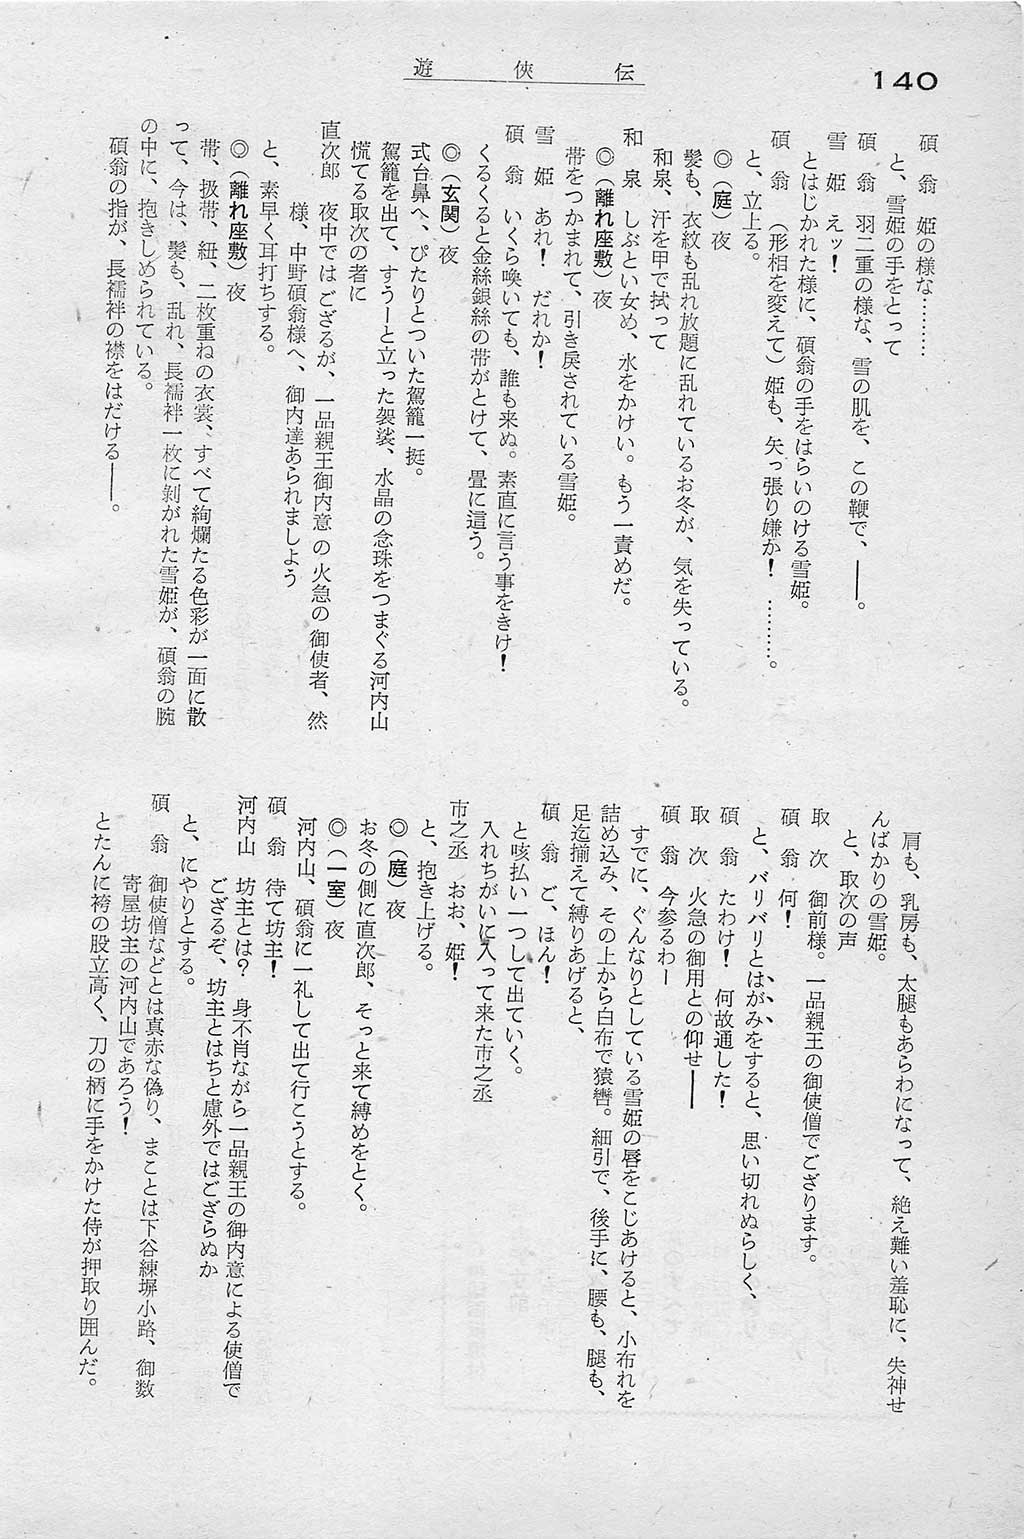 遊俠伝
140
碩　翁　姫の様な………
と、雪姫の手をとって
碩　翁　羽二重の様な、雪の肌を、この鞭で、――。
雪　姫　えッ！
とはじかれた様に、碩翁の手をはらいのける雪姫。
碩　翁　（形相を変えて）姫も、矢っ張り嫌か！　………。
と、立上る。
◎（庭）夜
髪も、衣紋も乱れ放題に乱れているお冬が、気を失っている。
和泉、汗を甲で拭って
和　泉　しぶとい女め、水をかけい。もう一責めだ。
◎（離れ座敷）夜
帯をつかまれて、引き戻されている雪姫。
雪　姫　あれ！　だれか！
碩　翁　いくら喚いても、誰も来ぬ。素直に言う事をきけ！
くるくると金絲銀絲の帯がとけて、畳に這う。
◎（玄関）夜
式台鼻へ、ぴたりとついた駕籠一挺。
駕籠を出て、すうーと立った袈裟、水晶の念珠をつまぐる河内山
慌てる取次の者に
直次郎　夜中ではござるが、一品親王御内意の火急の御使者、然
様、中野碩翁様へ、御内達あられましよう
と、素早く耳打ちする。
◎（離れ座敷）夜
帯、扱帯、紐、二枚重ねの衣裳、すべて絢爛たる色彩が一面に散
って、今は、髪も、乱れ、長襦袢一枚に剝がれた雪姫が、碩翁の腕
の中に、抱きしめられている。
碩翁の指が、長襦袢の襟をはだける――。
肩も、乳房も、太腿もあらわになって、絶え難い羞恥に、失神せ
んばかりの雪姫。
と、取次の声
取　次　御前様。一品親王の御使僧でござります。
碩　翁　何！
と、バリバリとはがみをすると、思い切れぬらしく、
碩　翁　たわけ！　何故通した！
取　次　火急の御用との仰せ――
碩　翁　今参るわー
すでに、ぐんなりとしている雪姫の唇をこじあけると、小布れを
詰め込み、その上から白布で猿轡。細引で、後手に、腰も、腿も、
足迄揃えて縛りあげると、
碩　翁　ご、ほん！
と咳払い一つして出ていく。
入れちがいに入って来た市之丞
市之丞　おお、姫！
と、抱き上げる。
◎（庭）夜
お冬の側に直次郎、そっと来て縛めをとく。
◎（一室）夜
河内山、碩翁に一礼して出て行こうとする。
碩　翁　待て坊主！
河内山　坊主とは？　身不肖ながら一品親王の御内意による使僧で
ござるぞ、坊主とはちと慮外ではござらぬか
と、にやりとする。
碩　翁　御使僧などとは真赤な偽り、まことは下谷練塀小路、御数
寄屋坊主の河内山であろう！
とたんに袴の股立高く、刀の柄に手をかけた侍が押取り囲んだ。